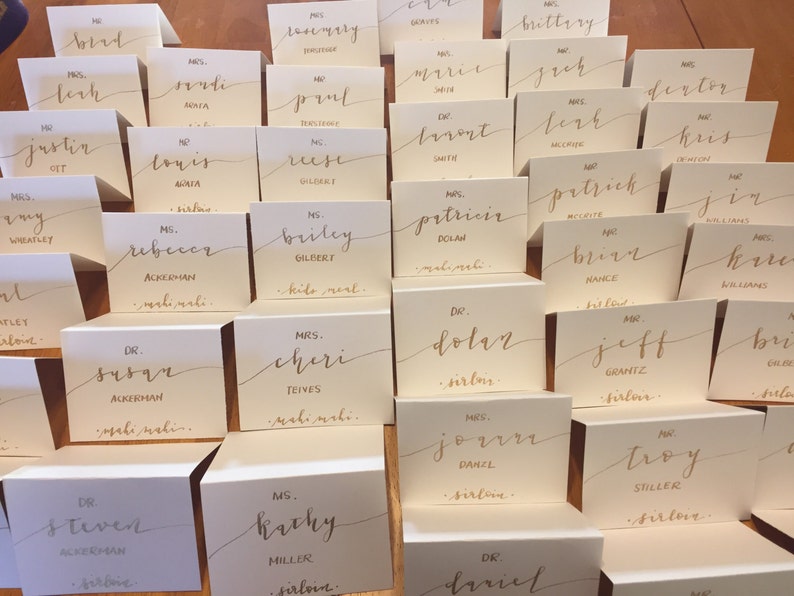 MR.
brad
MRS.
leah
MR
justin
OTT
MRS.
WHEATLEY
MRS.
sandi
ARATA
MR
louis
ARATA
sirloin.
MS.
rebecca
ACKERMAN
·mahi mahi·
DR.
susan
ACKERMAN
·mahi mahi·
DR.
steven
ACKERMAN
·sirloin·
MRS.
rosemary
TERSTEGGE
MR
paul
TERSTEGGE
MS.
reese
GILBERT
MS.
bailey
GILBERT
·kids meal·
MRS.
cheri
TEIVES
·mahi mahi·
MS.
kathy
MILLER
·sirloin·
GRAVES
MRS.
marie
SMITH
DR.
lamont
SMITH
MRS.
patricia
DOLAN
·mahi mahi·
DR.
dolan
·sirloin·
MRS.
joanna
DANZL
·sirloin·
DR.
daniel
MRS.
brittany
MR.
zach
MRS.
leah
MCCRITE
MR.
patrick
MCCRITE
MR.
brian
NANCE
·sirloin·
MR.
jeff
GRANTZ
·sirloin·
MR.
troy
STILLER
·sirloin·
MR
MRS.
denton
MR.
kris
DENTON
MR.
jim
WILLIAMS
MRS.
WILLIAMS
sirloin